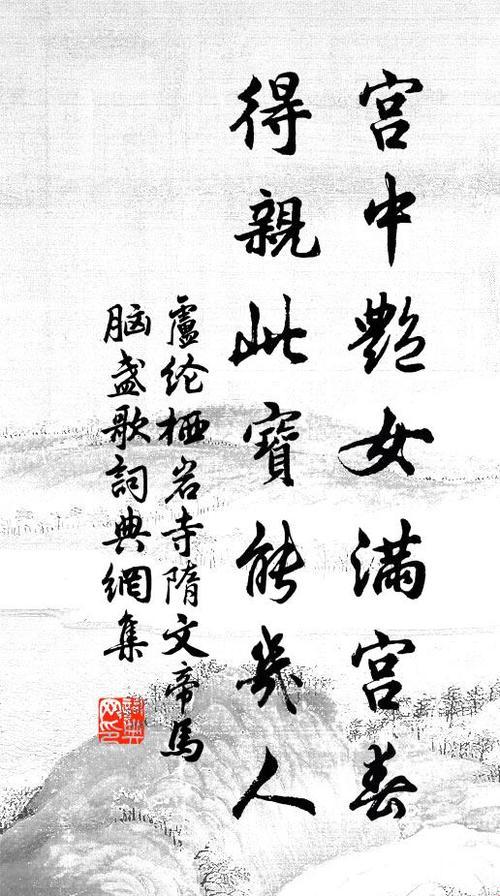 宫中艷女满宫春
得親此寶能幾人
盧纶栖岩寺隋文帝馬
脑盏歌詞典網集